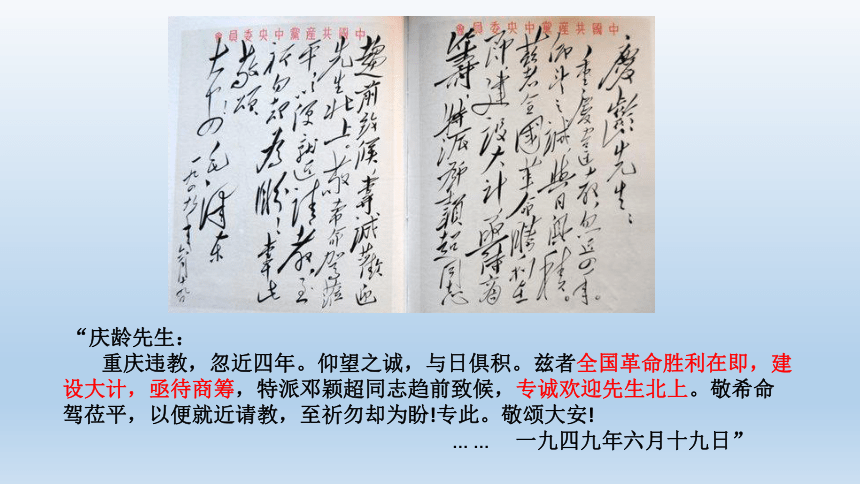 中國共産黨中央委員會
慶齡先生：
重慶違教，忽近四年。
仰望之誠，與日俱積。
兹者全國革命勝利在
即，建設大計，亟待商
籌，特派鄧穎超同志
中國共産黨中央委員會
趨前致候，專誠歡迎
先生北上。敬希命駕蒞
平，以便就近請教，至
祈勿卻為盼！專此
敬頌
大安！ 毛澤東
一九四九年六月十九日
“庆龄先生：
重庆违教，忽近四年。仰望之诚，与日俱积。兹者全国革命胜利在即，建
设大计，亟待商筹，特派邓颖超同志趋前致候，专诚欢迎先生北上。敬希命
驾莅平，以便就近请教，至祈勿却为盼!专此。敬颂大安!
... ... 一九四九年六月十九日”